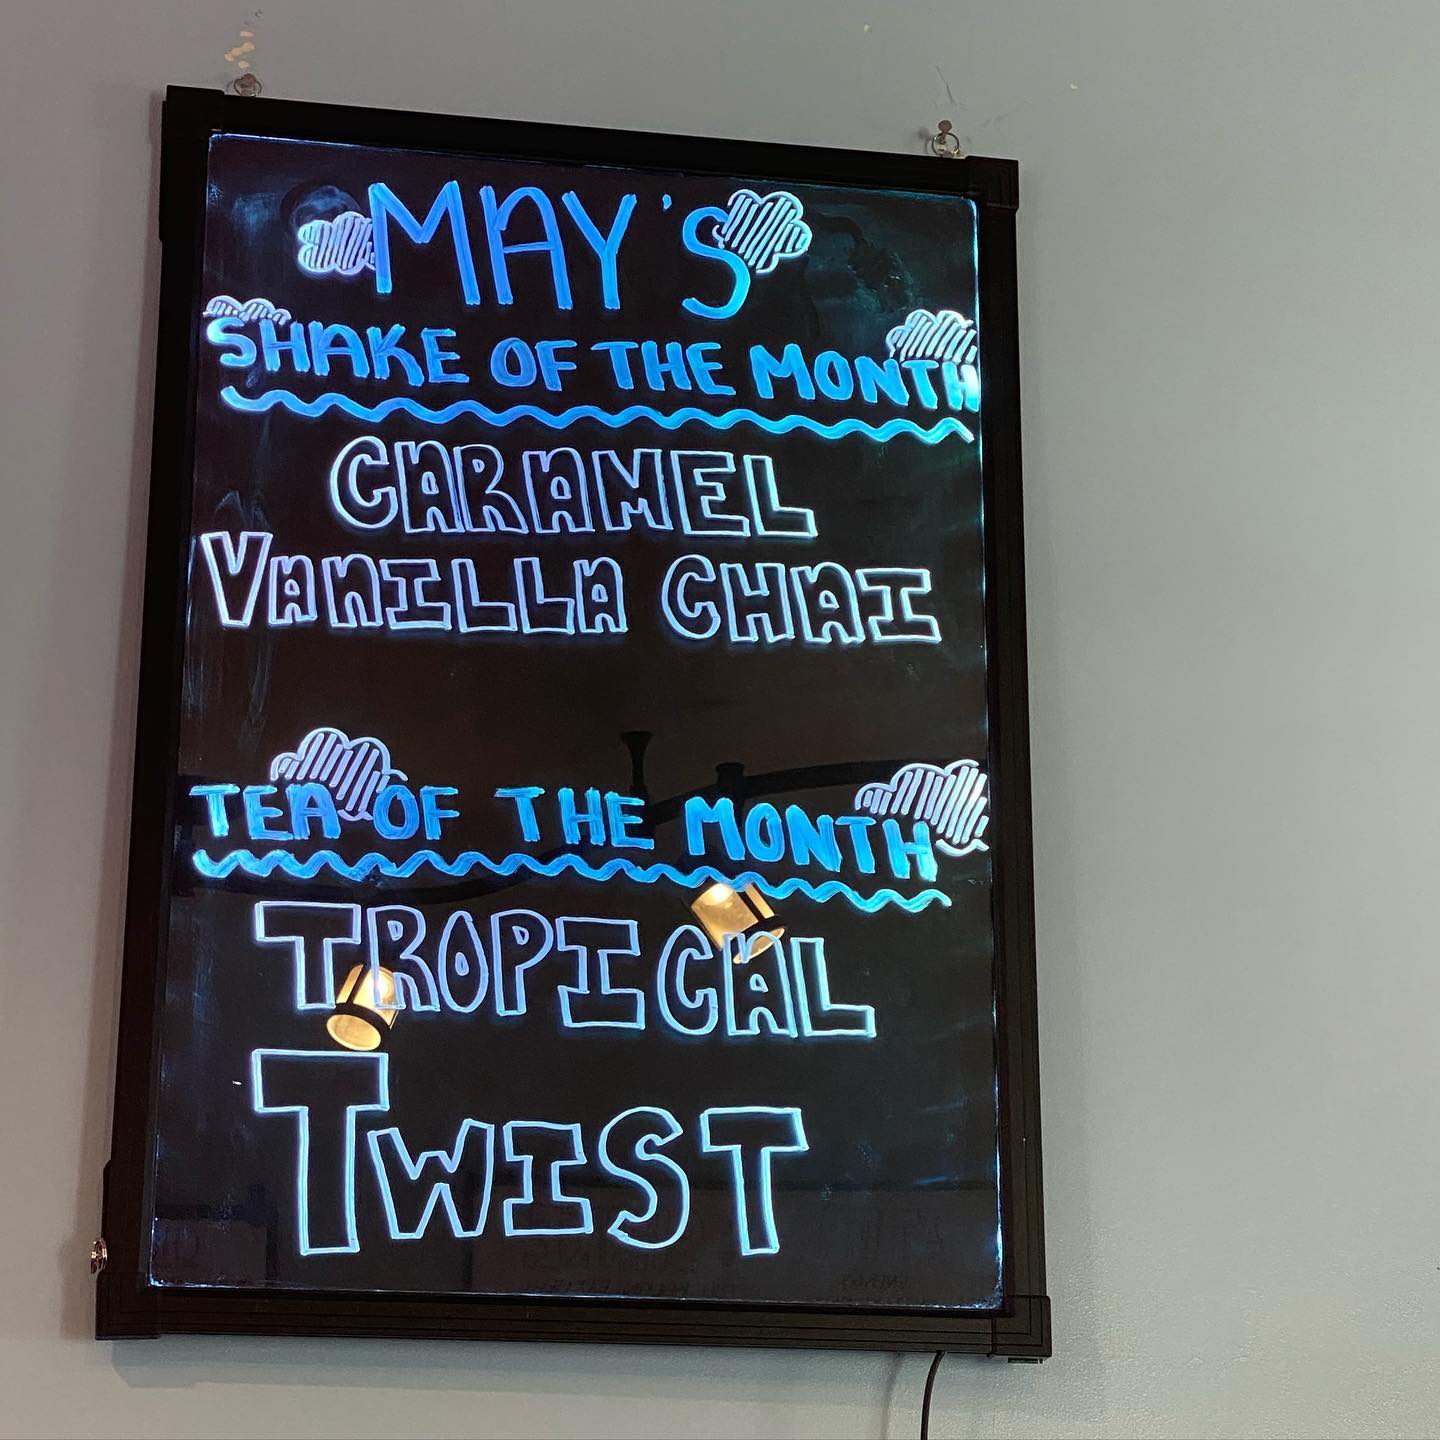 MAY'S
SHAKE OF THE MONTH
CARAMEL
VANILLA CHAI
TEA OF THE MONTH
TROPICAL
TWIST